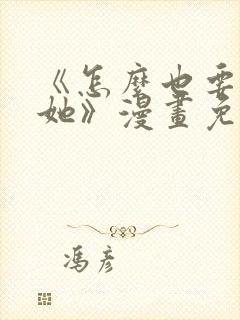 《怎麼也要
她》漫畫免
馮彥